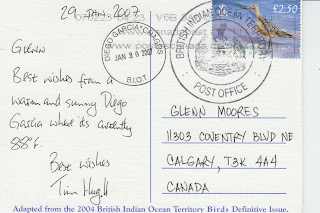 29 JAN 2007
GLENN
Best wishes from a
warm and sunny Diego
Garcia where its currently
88°F.
Best wishes
Tim
DIEGO GARCIA-CHAGOS
JAN 30 2007
B.I.O.T.
BRITISH INDIAN OCEAN TERRITORY
POST OFFICE
£2.50
GLENN MOORES
11303 COVENTRY BLVD NE
CALGARY, T3K 4A4
CANADA
Adapted from the 2004 British Indian Ocean Territory Birds Definitive Issue.